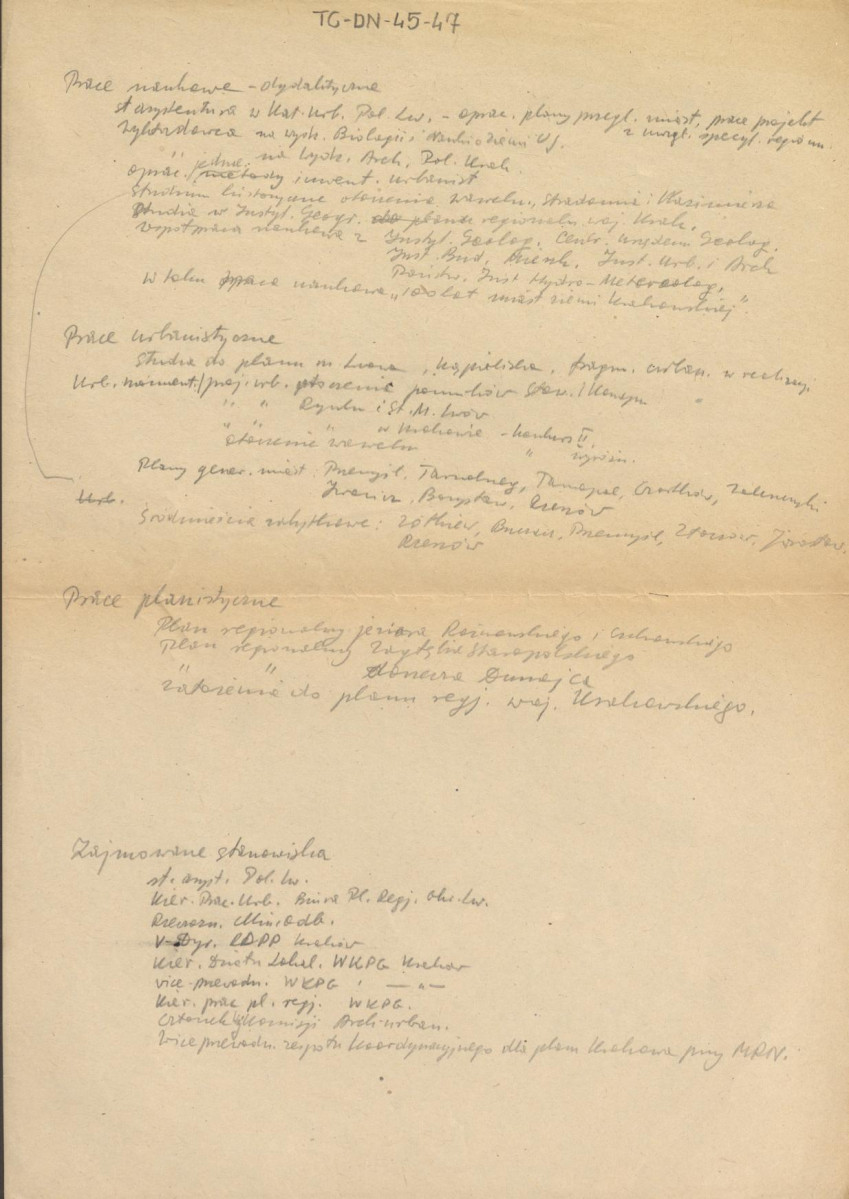 TG-DN-45-47
Prace naukowe - dydaktyczne
st asystentura w Kat. Urb. Pol. Lw. - oprac. plany przegl. miast, prace projekt
z uwzgl. specyf. regionu.
wykładowca na wydz. Biologii i Nauki o Ziemi UJ.
" na wydz. Arch. Pol. Krak.
oprac. jedna. metody inwent. urbanist
studium historyczne otoczenia Wawelu, Stradomia i Kazimierza
Studia w Instyt. Geogr. do planu regionaln. woj. Krak.
współpraca naukowa z Instyt. Geolog. Centr. Urzędem Geolog.
Inst. Bud. Inst. Urb. i Arch
Państw. Inst Hydro-Meteorolog.
w toku praca naukowa " lat miast ziemi Krakowskiej".
Prace urbanistyczne
Studia do planu m. Lwowa, Kąpieliska, fragm. urban. w realizacji
Urb. monument. / proj. urb. otoczenia pomników Słow. / Konopn
" " Rynku i St. M. Lwów
" " " w Krakowie - konkurs II
" otoczenie Wawelu " wyróżn.
Plany gener. miast Przemyśl, Tarnobrzeg, Tarnopol, Czortków, Zaleszczyki
Iwonicz, Borysław, Rzeszów
Urb.
Śródmieścia zabytkowe: Żółkiew, Buczacz, Przemyśl, Złoczów, Jarosław,
Rzeszów
Prace planistyczne
Plan regionalny jeziora Rożnowskiego i Czchowskiego
Plan regionalny Zagłębia Staropolskiego
" " dorzecza Dunajca
Założenia do planu regj. woj. Krakowskiego.
Zajmowane stanowiska
st. asyst. Pol. Lw.
Kier. Prac. Urb. Biura Pl. Regj. Okr. Lw.
Rzeczozn. Min. Odb.
V-Dyr. RDPP Kraków
Kier. Działu Lokal. WKPG Kraków
vice-przewodn. WKPG - " -
Kier. prac pl. regj. WKPG.
Członek Komisji Arch-urban.
Viceprzewodn. zespołu Koordynacyjnego dla planu Krakowa przy MRN.